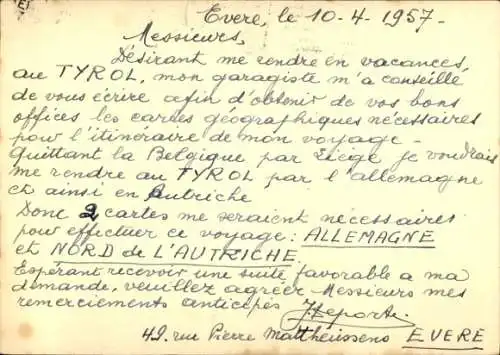 Evere, le 10-4-1957-
Messieurs,
Désirant me rendre en vacances
au TYROL, mon garagiste m'a conseillé
de vous écrire afin d'obtenir de vos bons
offices les cartes géographiques nécessaires
pour l'itinéraire de mon voyage-
Quittant la Belgique par Liège je voudrais
me rendre au TYROL par l'allemagne
et ainsi en Autriche
Donc 2 cartes me seraient nécessaires
pour effectuer ce voyage: ALLEMAGNE
et NORD de L'AUTRICHE.
Espérant recevoir une suite favorable a ma
demande, veuillez agréer Messieurs mes
remerciements anticipés
49, rue Pierre Mattheussens EVERE